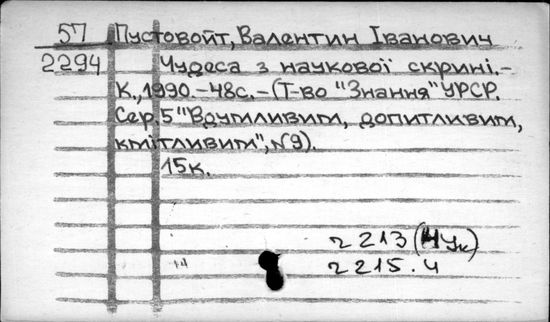 57 Пустовойт, Валентин Іванович
2294 Чудеса з наукової скрині.-
К.,1990.-48с.-(Т-во "Знання" УРСР.
Сер.5 "Вдумливим, допитливим,
кмітливим", №9).
15к.
2213 (4Ук)
2215.4